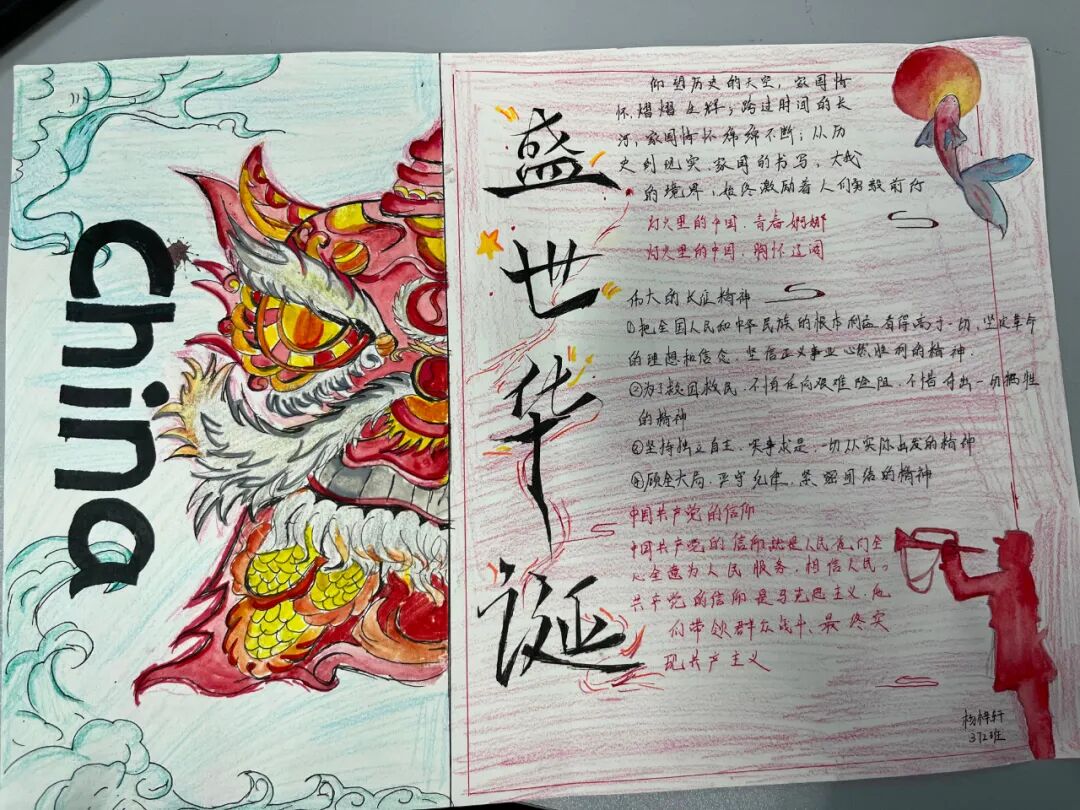 china
盛世华诞
仰望历史的天空，家国情
怀熠熠生辉；跨过时间的长
河，家国情怀绵绵不断；从历
史到现实，家国的书写，大我
的境界，始终激励着人们勇毅前行
灯火里的中国，青春婀娜
灯火里的中国，胸怀辽阔
伟大的长征精神
①把全国人民和中华民族的根本利益看得高于一切，坚定革命
的理想和信念，坚信正义事业必然胜利的精神.
②为了救国救民，不怕任何艰难险阻，不惜付出一切牺牲
的精神
③坚持独立自主，实事求是，一切从实际出发的精神
④顾全大局，严守纪律，紧密团结的精神
中国共产党的信仰
中国共产党的信仰就是人民，他们全
心全意为人民服务，相信人民。
共产党的信仰是马克思主义，他
们带领群众战斗，最终实
现共产主义
372班